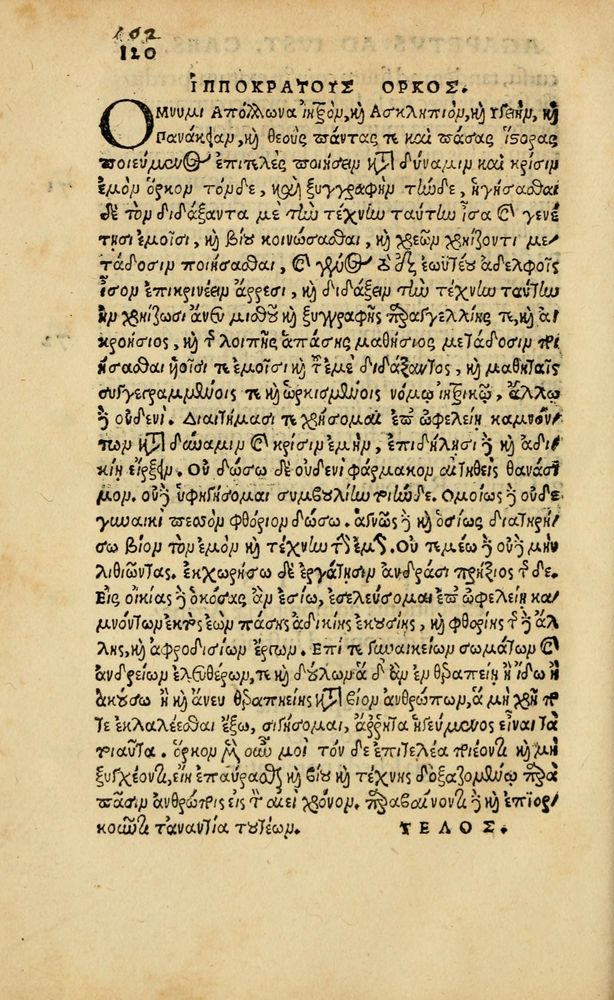 162
120
ΙΠΠΟΚΡΑΤΟΥΣ ΟΡΚΟΣ.
ΟΜΝΥΜΙ Απόλλωνα ἰητρὸν, καὶ Ασκληπιὸν, καὶ Υγείην, καὶ
Πανάκειαν, καὶ θεοὺς πάντας τε καὶ πάσας ἵστορας
ποιεύμενος ἐπιτελέα ποιήσειν κατὰ δύναμιν καὶ κρίσιν
ἐμὴν ὅρκον τόνδε, καὶ ξυγγραφὴν τήνδε, ἡγήσασθαι
δὲ τὸν διδάξαντα με τὴν τέχνην ταύτην ἶσα καὶ γενέ
τησι ἐμοῖσι, καὶ βίου κοινώσασθαι, καὶ χρεῶν χρηίζοντι με-
τάδοσιν ποιήσασθαι, καὶ γένος τὸ ἐξ ἑωϋτέου ἀδελφοῖς
ἶσον ἐπικρινέειν ἄρρεσι, καὶ διδάξειν τὴν τέχνην ταύτην
ἢν χρηίζωσι ἄνευ μισθοῦ καὶ ξυγγραφῆς παραγγελίης τε, καὶ ἀ-
κροήσιος, καὶ τῆς λοιπῆς ἁπάσης μαθήσιος μετάδοσιν ποι
ήσασθαι υἱοῖσι τε ἐμοῖσι καὶ τοῦ ἐμὲ διδάξαντος, καὶ μαθηταῖς
συγγεγραμμένοις τε καὶ ὡρκισμένοις νόμῳ ἰητρικῷ, ἄλλῳ
δὲ οὐδενί. Διαιτήμασί τε χρήσομαι ἐπ' ὠφελείῃ καμνόν-
των κατὰ δύναμιν καὶ κρίσιν ἐμὴν, ἐπὶ δηλήσι δὲ καὶ ἀδι-
κίῃ εἴρξειν. Οὐ δώσω δὲ οὐδενὶ φάρμακον αἰτηθεὶς θανάσι
μον. οὐδὲ ὑφηγήσομαι συμβουλίην τοιήνδε. Ομοίως δὲ οὐδὲ
γυναικὶ πεσσὸν φθόριον δώσω. ἁγνῶς δὲ καὶ ὁσίως διατηρή-
σω βίον τὸν ἐμὸν καὶ τέχνην τὴν ἐμήν. Οὐ τεμέω δὲ οὐδὲ μὴν
λιθιῶντας. ἐκχωρήσω δὲ ἐργάτησιν ἀνδράσι πρήξιος τῆς δε.
Εἰς οἰκίας δὲ ὁκόσας ἂν ἐσίω, ἐσελεύσομαι ἐπ' ὠφελείῃ κα-
μνόντων ἐκτὸς ἐὼν πάσης ἀδικίης ἑκουσίης, καὶ φθορίης τῆς δὲ ἄλ
λης, καὶ ἀφροδισίων ἔργων. Επί τε γυναικείων σωμάτων καὶ
ἀνδρείων ἐλευθέρων, τε καὶ δούλων ἃ δ' ἂν ἐν θεραπείῃ ἢ ἴδω ἢ
ἀκούσω ἢ καὶ ἄνευ θεραπηείης κατὰ βίον ἀνθρώπων, ἃ μὴ χρή πο
τε ἐκλαλέεσθαι ἔξω, σιγήσομαι, ἄρρητα ἡγεύμενος εἶναι τὰ
τοιαῦτα. ὅρκον μὲν οὖν μοι τόν δε ἐπιτελέα ποιέοντι καὶ μὴ
ξυγχέοντι, εἴη ἐπαύρασθαι καὶ βίου καὶ τέχνης δοξαζομένῳ παρὰ
πᾶσιν ἀνθρώποις εἰς τὸν αἰεὶ χρόνον. παραβαίνοντι δὲ καὶ ἐπίορ-
κοῦντι τἀναντία τουτέων. ΤΕΛΟΣ.